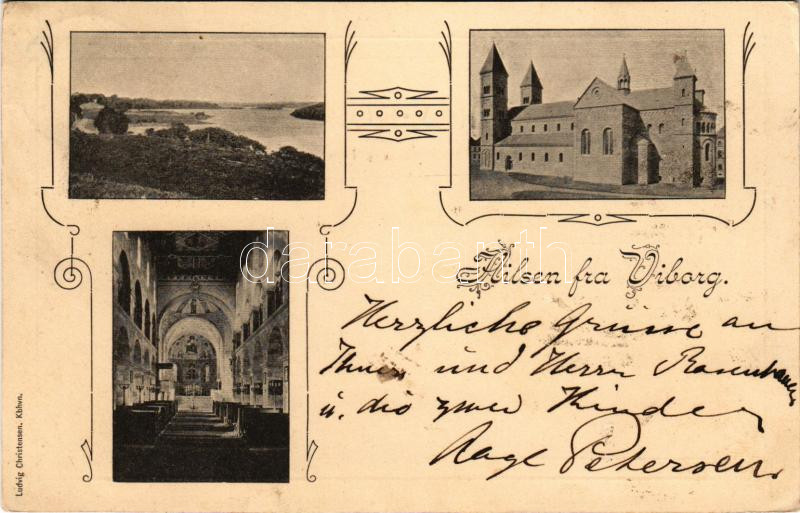 Hilsen fra Viborg.
Herzliche Grüsse an
Ihnen und Herrn Rosenhauer
u. die zwei Kinder
Aage Petersen.
Ludvig Christensen. Kbhvn.
darabanth